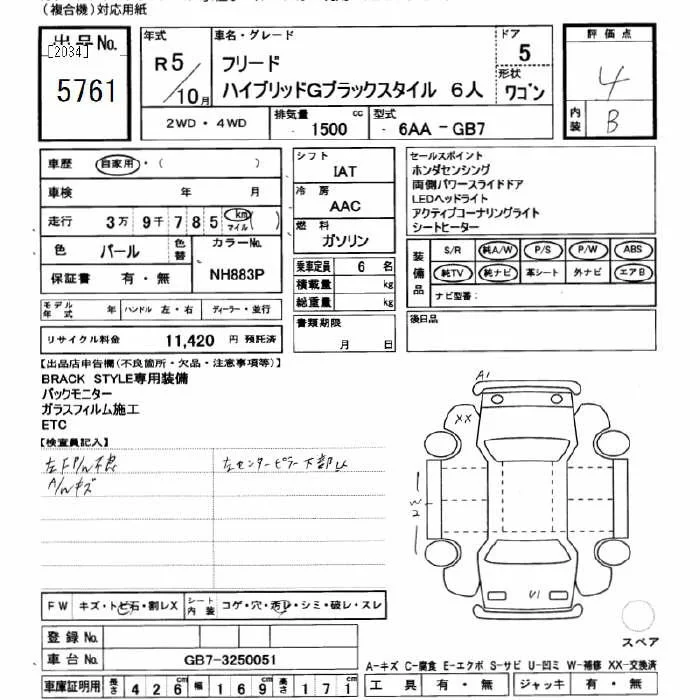 （複合機）対応用紙
出品No.
[2034]
5761
年式
R5/10月
車名・グレード
フリード
ハイブリッドGブラックスタイル 6人
ドア
5
形状
ワゴン
評価点
4
内装
B
2WD・4WD
排気量 1500 cc
型式 6AA－GB7
車歴 自家用・( )
車検 年 月
走行 3万9千785 km マイル ( )
色 パール 色替
カラーNo.
NH883P
保証書 有・無
モデル年式 年 ハンドル 左・右 ディーラー・並行
リサイクル料金 11,420 円 預託済
シフト
IAT
冷房
AAC
燃料
ガソリン
乗車定員 6 名
積載量 kg
総重量 kg
書類期限
月 日
セールスポイント
ホンダセンシング
両側パワースライドドア
LEDヘッドライト
アクティブコーナリングライト
シートヒーター
装備品
S/R 純A/W P/S P/W ABS
純TV 純ナビ 革シート 外ナビ エアB
ナビ型番：
後日品
【出品店申告欄(不良箇所・欠品・注意事項等)】
BRACK STYLE専用装備
バックモニター
ガラスフィルム施工
ETC
【検査員記入】
A/wキズ
左センターピラー下部
A1
XX
W2
U1
FW キズ・トビ石・割レX
シート内装 コゲ・穴・汚レ・シミ・破レ・スレ
登録No.
車台No. GB7-3250051
車庫証明用 長さ 426cm 幅 169cm 高さ 171cm
スペア
A-キズ C-腐食 E-エクボ S-サビ U-凹ミ W-補修 XX-交換済
工具 有・無 ジャッキ 有・無